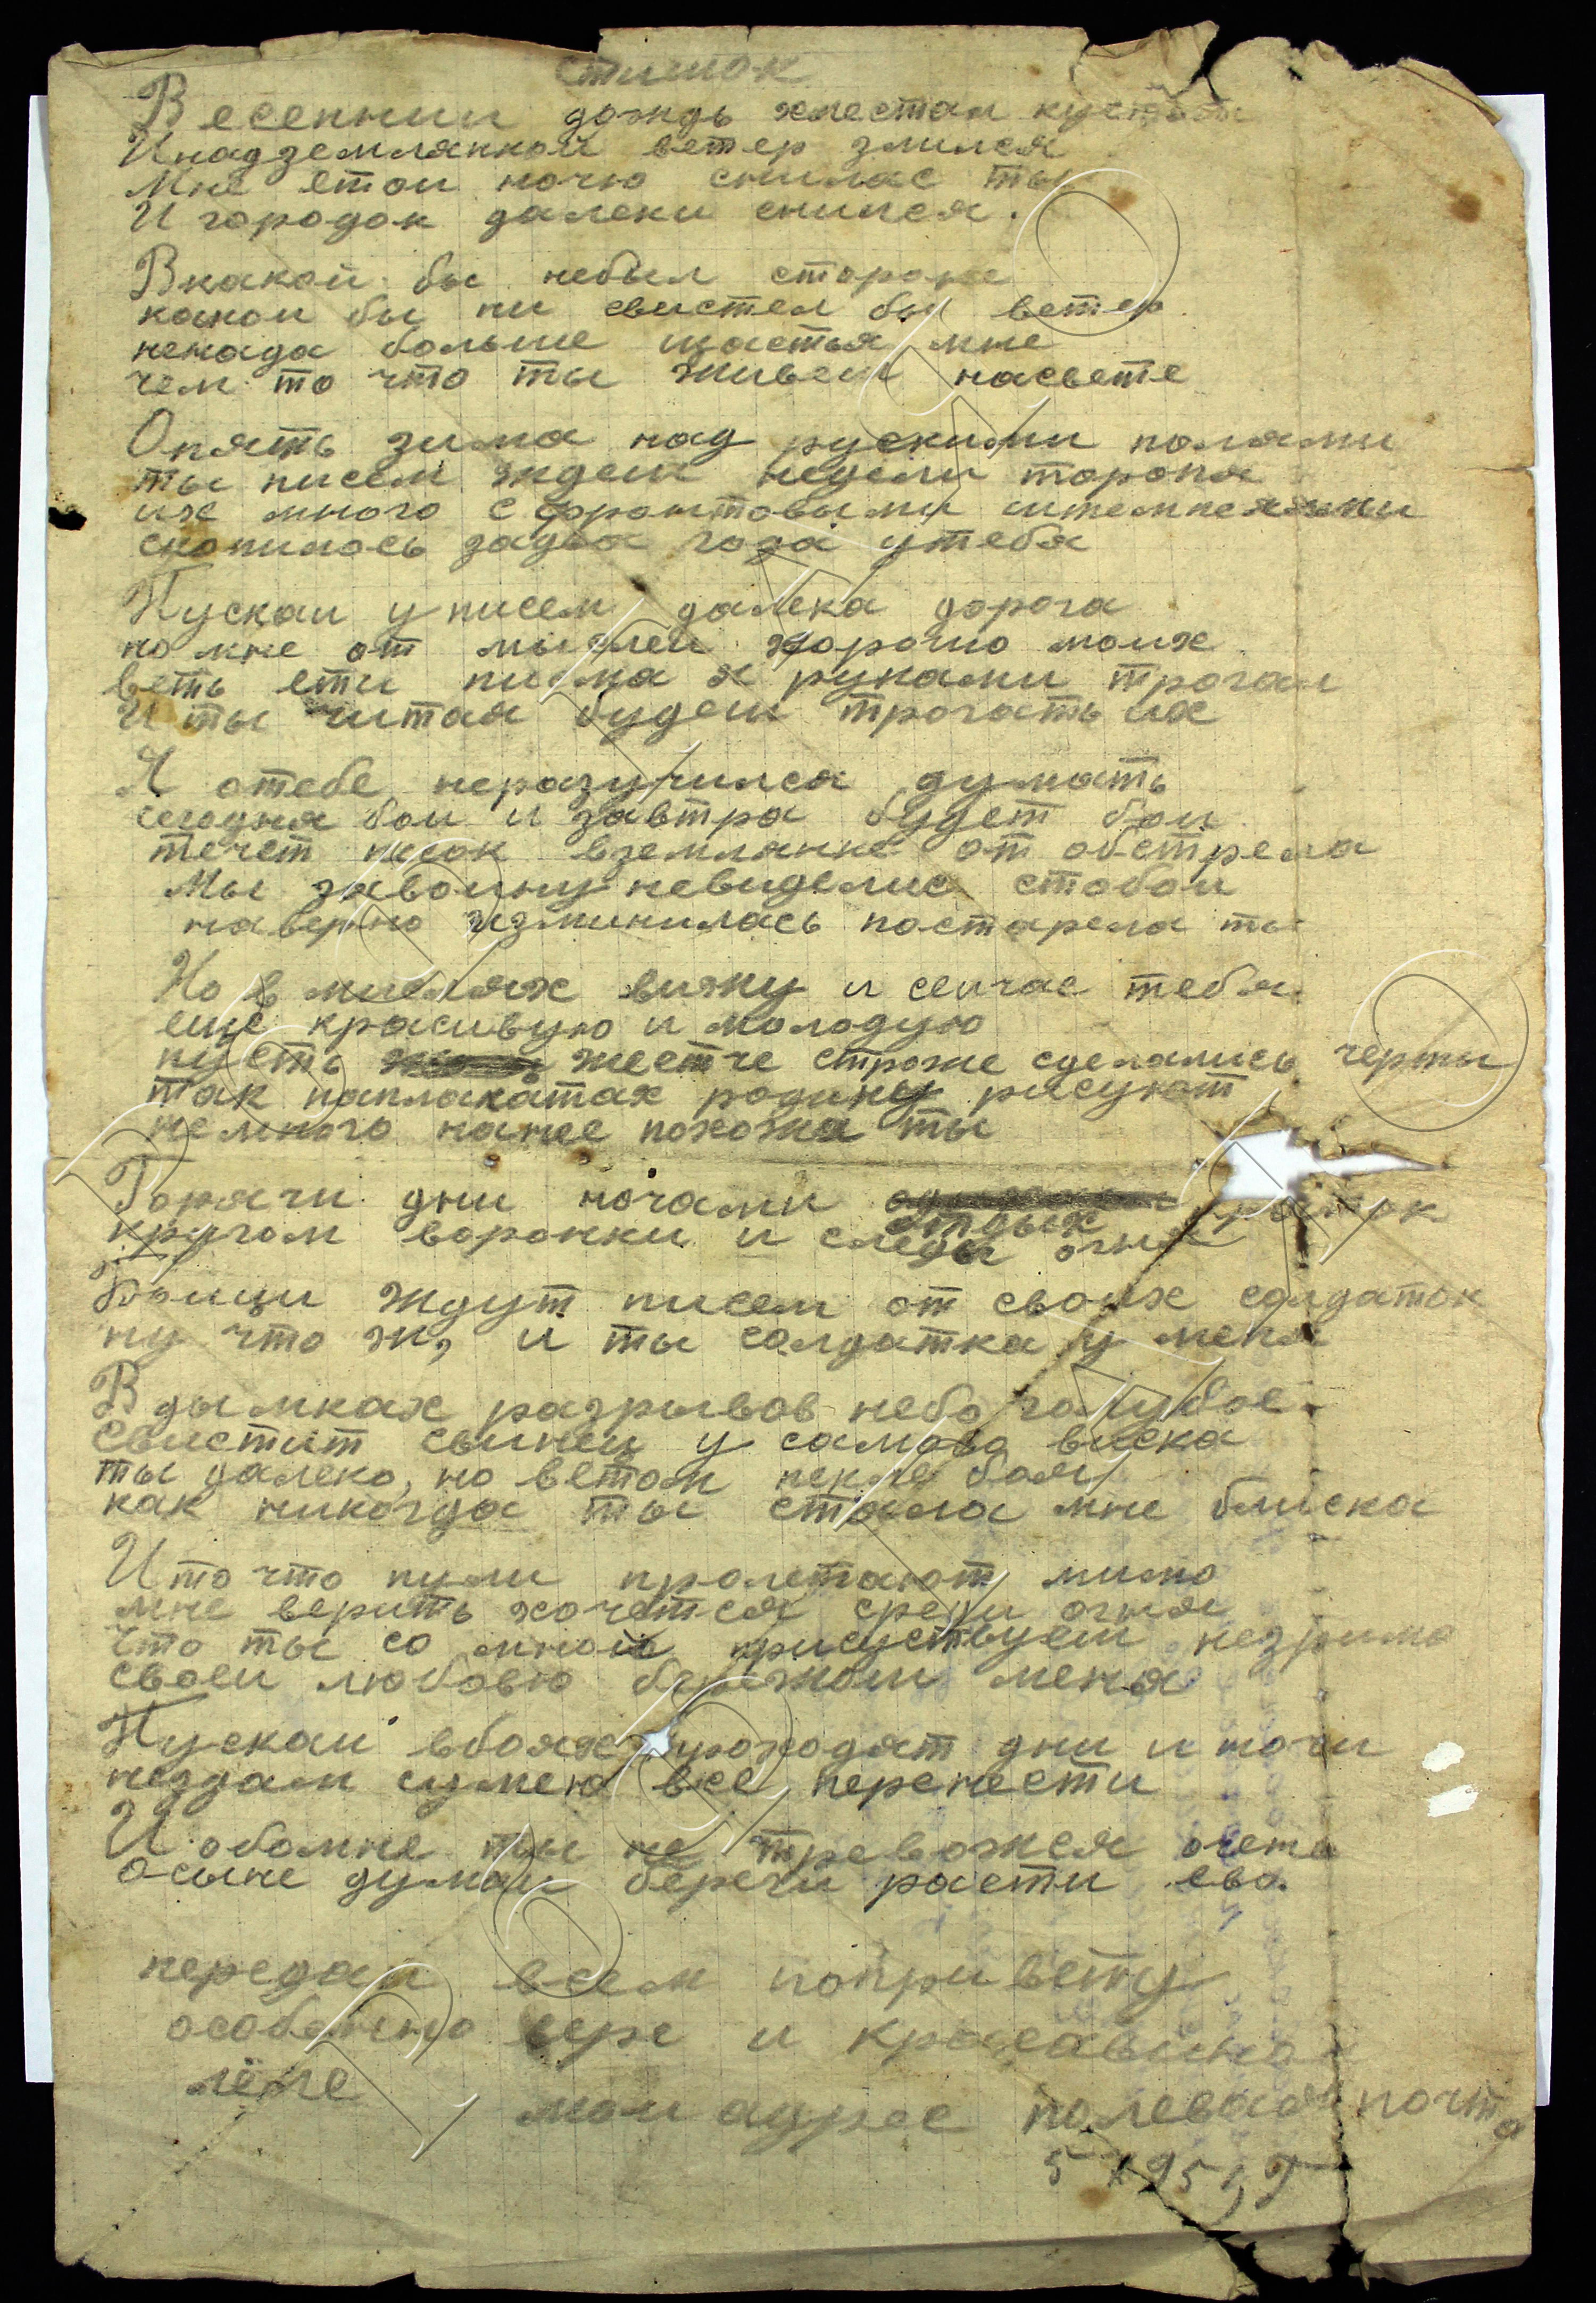 стишок
Весеннии дождь хлестал кусты
И над землянкой ветер злился
Мне етои ночю снилас ты
И городок далеки снился.
Вкакой бы небыл стороне
какои бы ни свистел бы ветер
ненада больше щастья мне
чем то что ты живеш насвете
Опять зима над рускими полями
ты писем ждеш недели торопя
их много с фронтовыми штемпелями
скопилось задва года утебя
Пускаи у писем далека дорога
но мне от мыслеи хорошо моих
веть ети писма я руками трогал
И ты читая будеш трогать их
Я отебе неразучился думать
сегодня бои и завтра будет бои
течет песок вземлянке от обстрела
Мы завоину невиделис стобои
наверно изминилась постарела ты
Но в мыслях вижу и сеичас тебя
еще красивую и молодую
пусть жестче строже сделались черты
так наплакатах родину рисуют
немного нанее похожа ты
Горячи дни ночами отдых краток
кругом воронки и следы огня
Боицы ждут писем от своих солдаток
ну что ж, и ты солдатка у меня
В дымках разрывов небо голубое
Свистит свинец у самова виска
ты далеко, но ветом пекле боя
как никогда ты стала мне блиска
И то что пули пролетают мимо
мне верить хочется среди огня
что ты со мной присуствуеш незримо
своеи любовю бережош меня
Пускаи вбоях проходят дни и ночи
нездам сумею все перенести
И обомне ты не тревожся очень
осыне думаи береги расти ево.
передаи всем попривету
особенно вере и красавице
лёле
мои адрес полевая почта